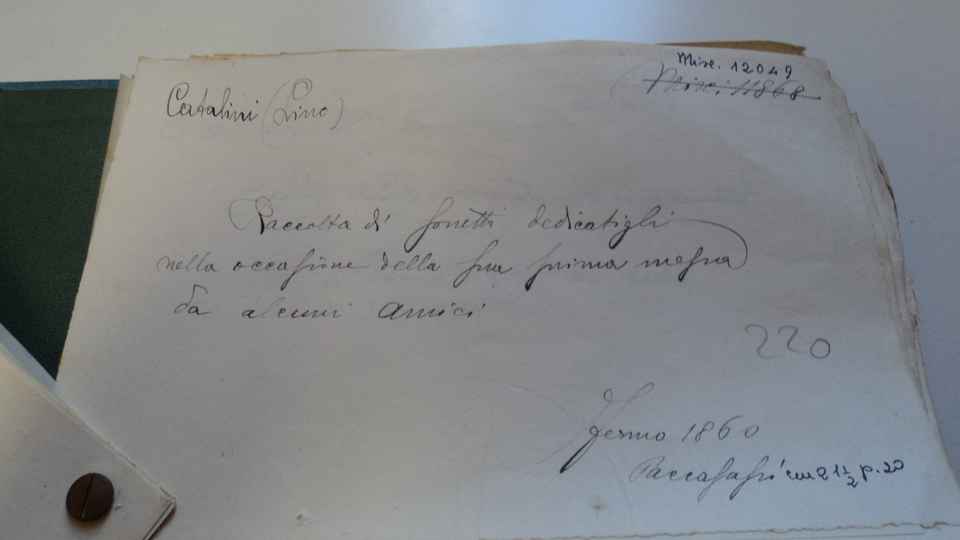 Misc. 12049
Misc. 11868
Catalini (Lino)
Raccolta di sonetti dedicatigli
nella occasione della sua prima messa
da alcuni amici
220
Fermo 1860
Paccasassi cm 21 1/2 p. 20